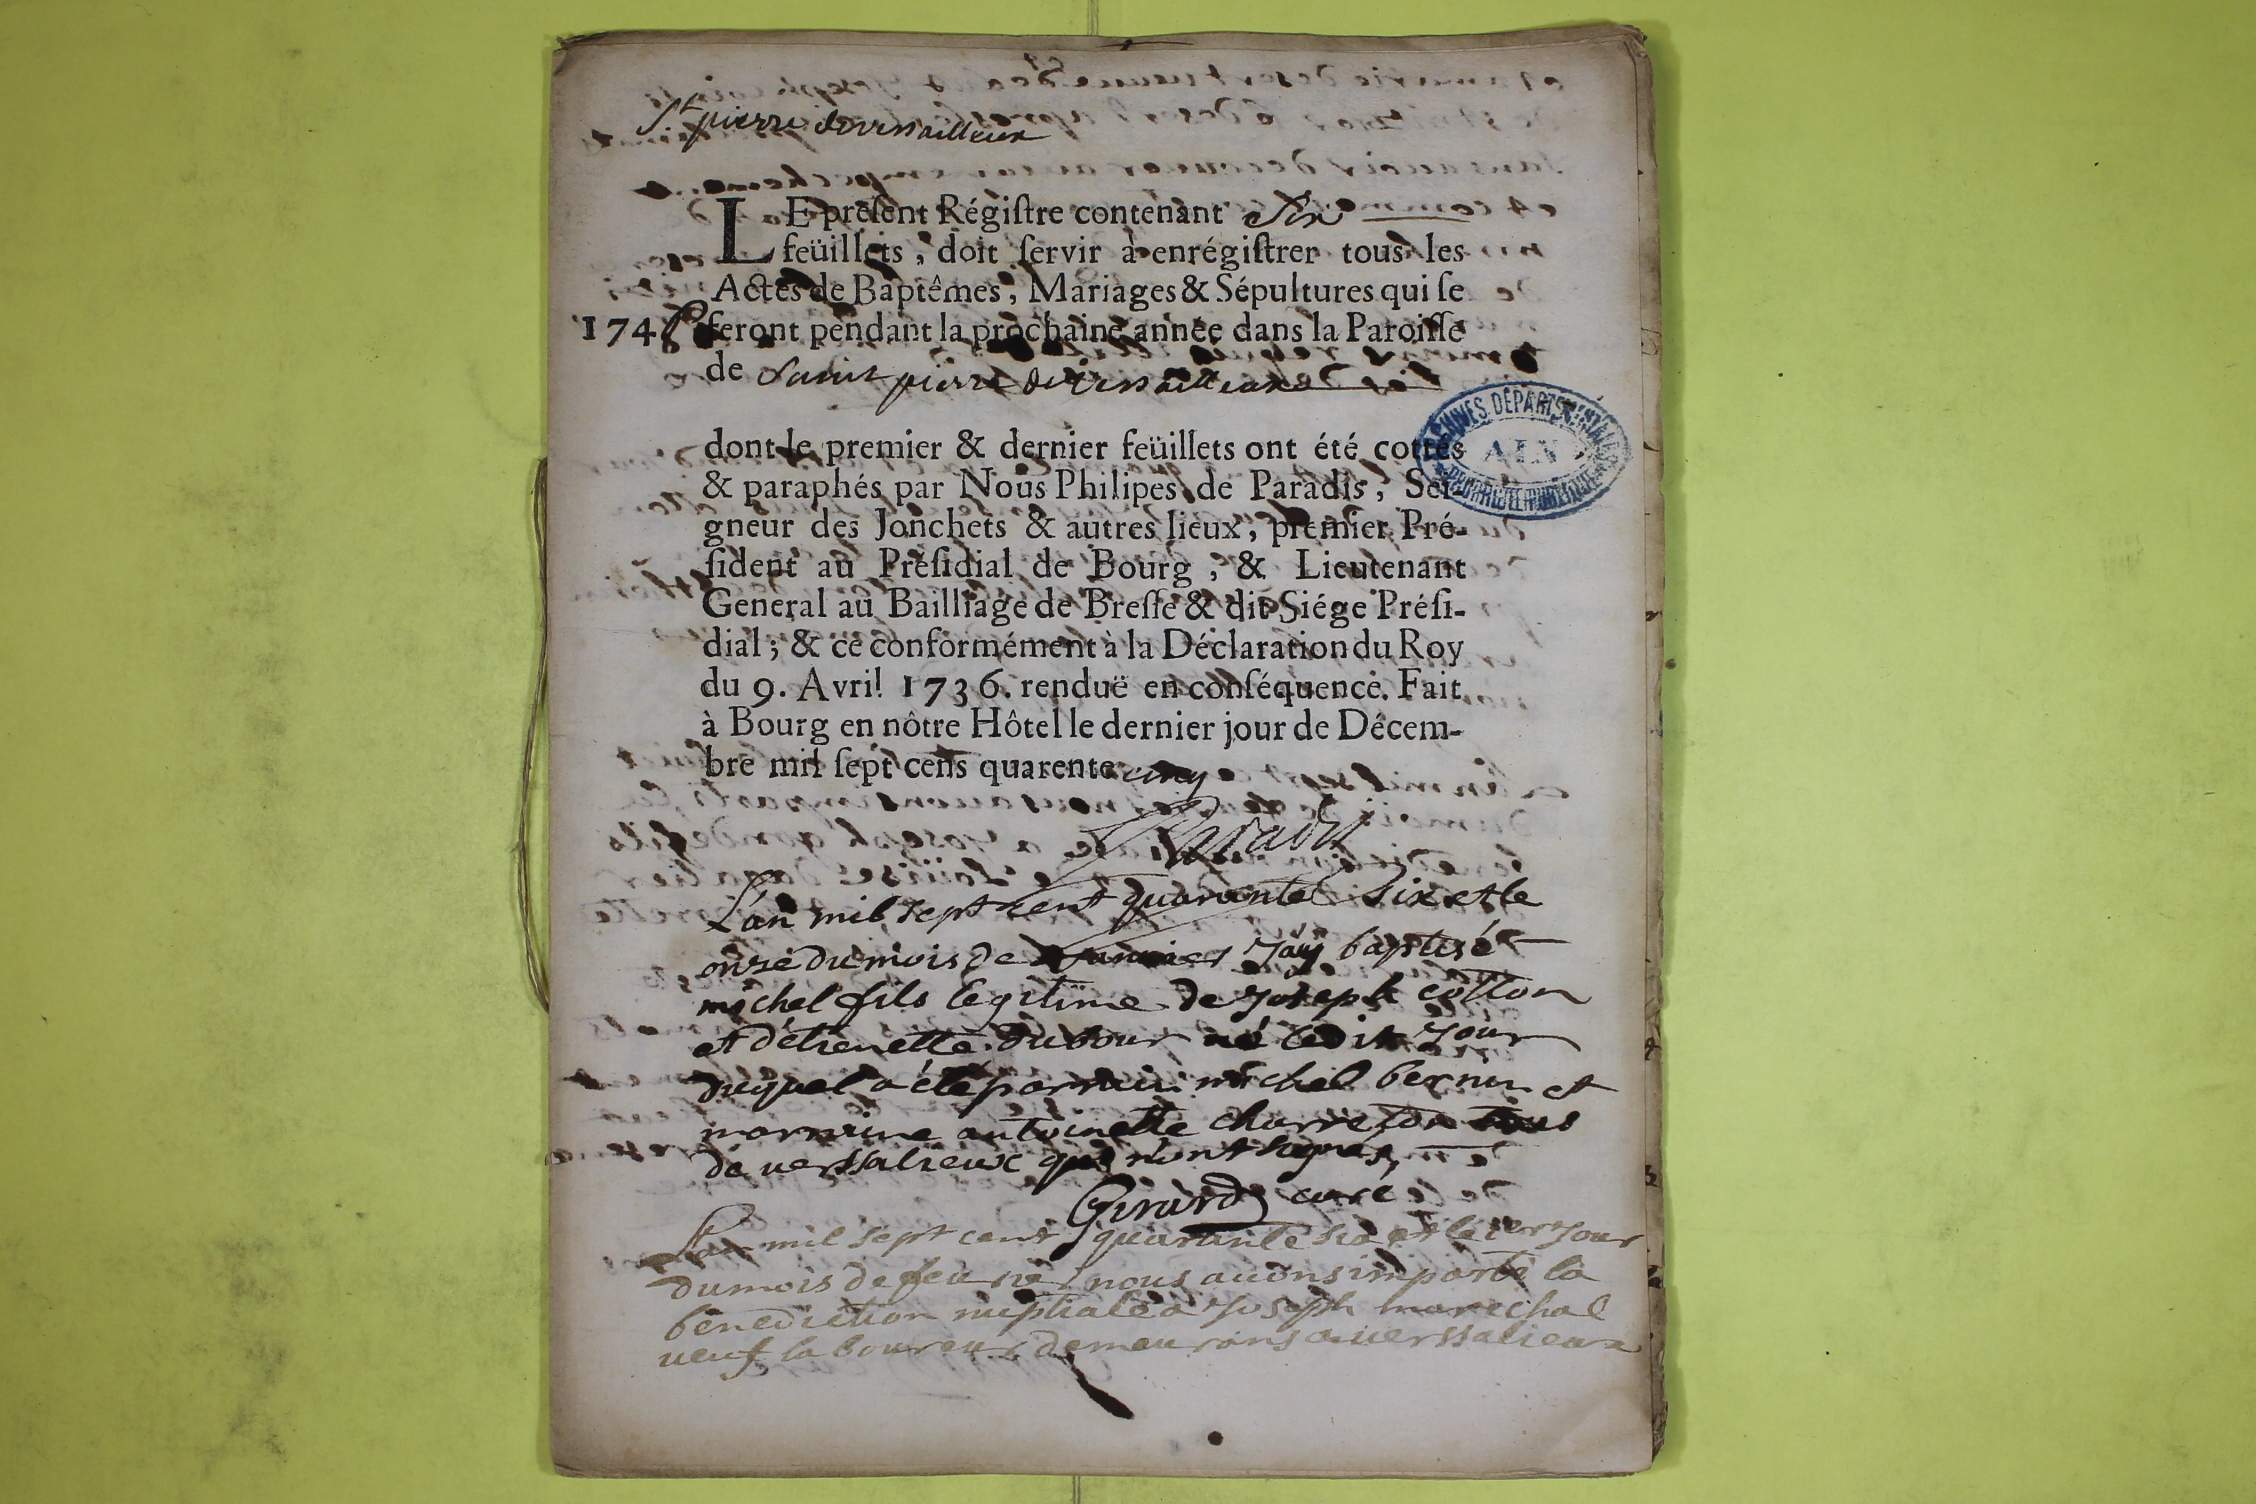 St pierre deversailleux
LE présent Régiſtre contenant Six
feüillets, doit ſervir à enrégiſtrer tous les
Actes de Baptêmes, Mariages & Sépultures qui ſe
1746 feront pendant la prochaine année dans la Paroiſſe
de Saint pierre deversailleux
dont le premier & dernier feüillets ont été cottés
& paraphés par Nous Philipes de Paradis, Sei-
gneur des Jonchets & autres lieux, premier Pré-
ſident au Préſidial de Bourg, & Lieutenant
General au Bailliage de Breſſe & dit Siége Préſi-
dial; & ce conformément à la Déclaration du Roy
du 9. Avril 1736. renduë en conſéquence. Fait
à Bourg en nôtre Hôtel le dernier jour de Décem-
bre mil ſept cens quarente cinq
Paradis
L'an mil sept cent quarante six et le
onze du mois de Janvier j'ay baptisé
michel fils legitime de joseph cotton
et d'étienette dubour né ledit jour
duquel a été parrain michel bernin et
marraine antoinette charreton tous
de verssalieux qui n'ont signés,
Girard curé
L'an mil sept cent quarante six et le 1er jour
du mois de feuvrier nous avons imparti la
benediction nuptiale a joseph marechal
veuf laboureur demeurans a verssalieux
ARCHIVES DÉPARTEMENTALES
AIN